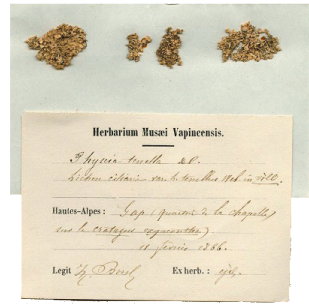 Herbarium Musæi Vapincensis.
Physcia tenella DC.
Lichen ciliaris var. b. tenellus
Hautes-Alpes : Gap (quartier de la chapelle)
sur le cratægus oxyacantha)
11 février 1866.
Legit Ex herb. :